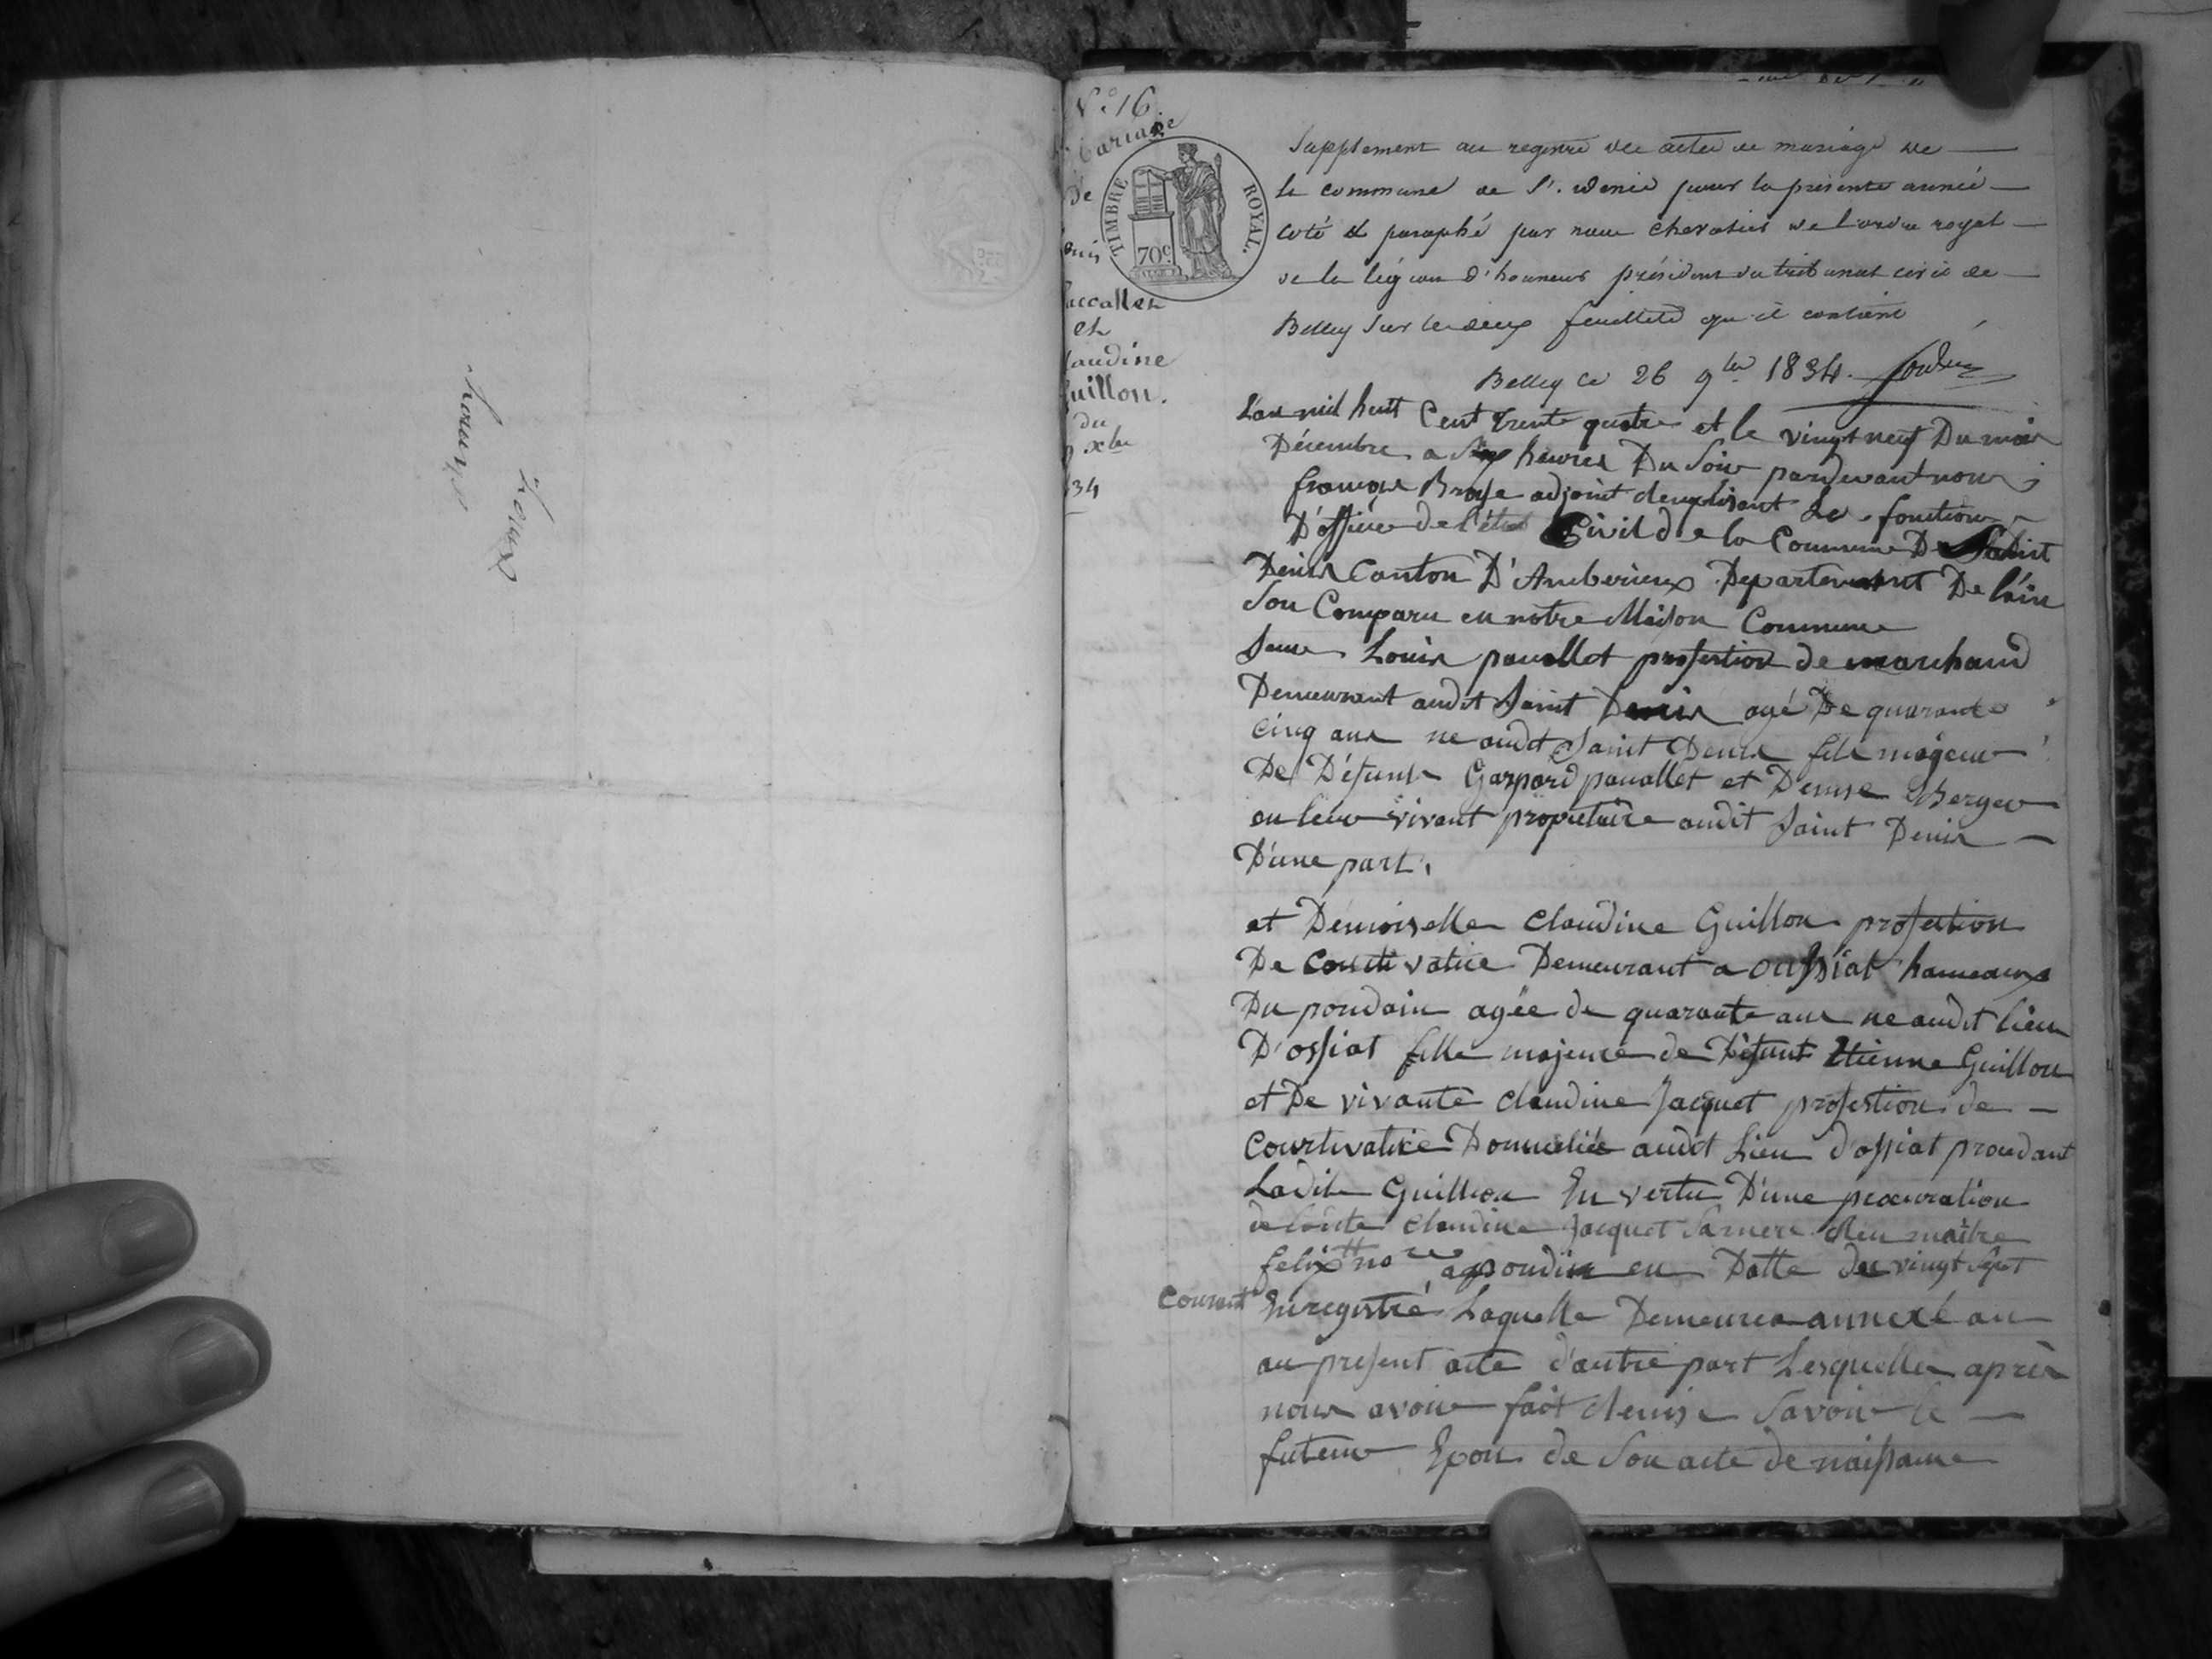 N.° 16.
Mariage
De
TIMBRE ROYAL.
70c.
accallet
et
laudine
uillon.
du
xbre
34
Supplement au registre des actes de mariage de
la commune de St. Denis pour la présente année
coté et paraphé par nous chevalier de l'ordre royal
de la légion d'honneur président du tribunal civil de
Belley sur les deux feuillets qu'il contient
Belley ce 26 9bre 1834.
L'an mil huit Cent trente quatre et le vingt neuf Du mois
Décembre a Six heures Du Soir pardevant nous
françois adjoint Les fonctions
D'officier de l'état Civil de la Commune De Saint
Denis Canton D'Amberieux Departement De l'ain
Son Comparu en notre Maison Commune
Louis paucallet profestion de marchand
Demeurant audit Saint Denis agé De quarante
cinq ans ne audit Saint Denis fils majeur
De Défunts Gaspard pauallet et Denise Berger
en leur vivant propriétaire audit Saint Denis
D'une part,
et Demoiselle Claudine Guillon profestion
De Coultivatice Demeurant a ossiat hameaux
Du poudain agée de quarante ans ne audit lieu
D'ossiat fille majeure de Défunt Etienne Guillon
et De vivante claudine Jacquet profestion de
Courtivatice Domiciliée audit Lieu d'ossiat
Ladite Guillon En vertu D'une procuration
de claudine Jacquet Sa mere maître
felix nore en Datte du vingt Sept
Courant Enregistré Laquelle Demeurera annexé au
au present acte d'autre part Lesquelles après
nous avoir fait Savoir le
futeur Epou de Son acte de naissance